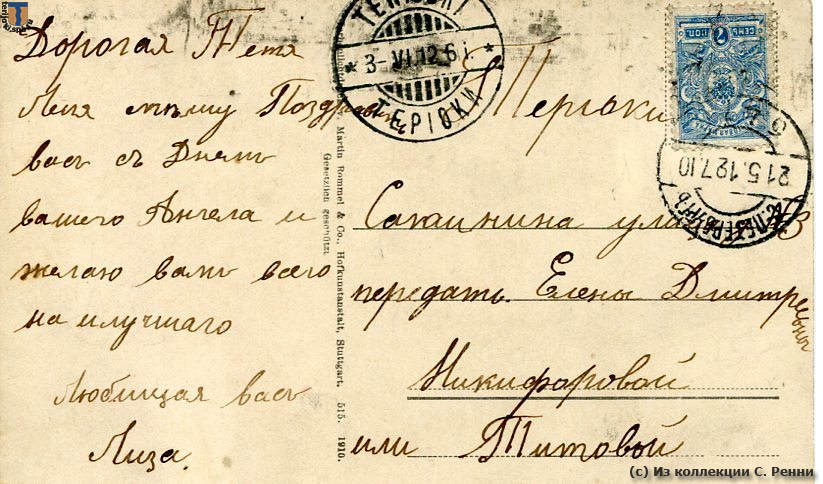 Дорогая Тетя
Леля шлю Поздравить
васъ съ Днемъ
вашего Ангела и
желаю вамъ всего
на илучшаго
Любящая васъ
Лиза.
TERIJOKI
3-VI.12.6 i.
ТЕРІОКИ
Martin Rommel & Co., Hofkunstanstalt, Stuttgart. 515. 1910.
Gesetzlich geschützt.
Териоки
улица
передать Елены Дмитревны
Никифоровой
или Титовой
7
СЕМЬ КОП.
С.ПЕТЕРБУРГЪ
21.5.12 7.10
terijoki.spb.ru
(c) Из коллекции С. Ренни